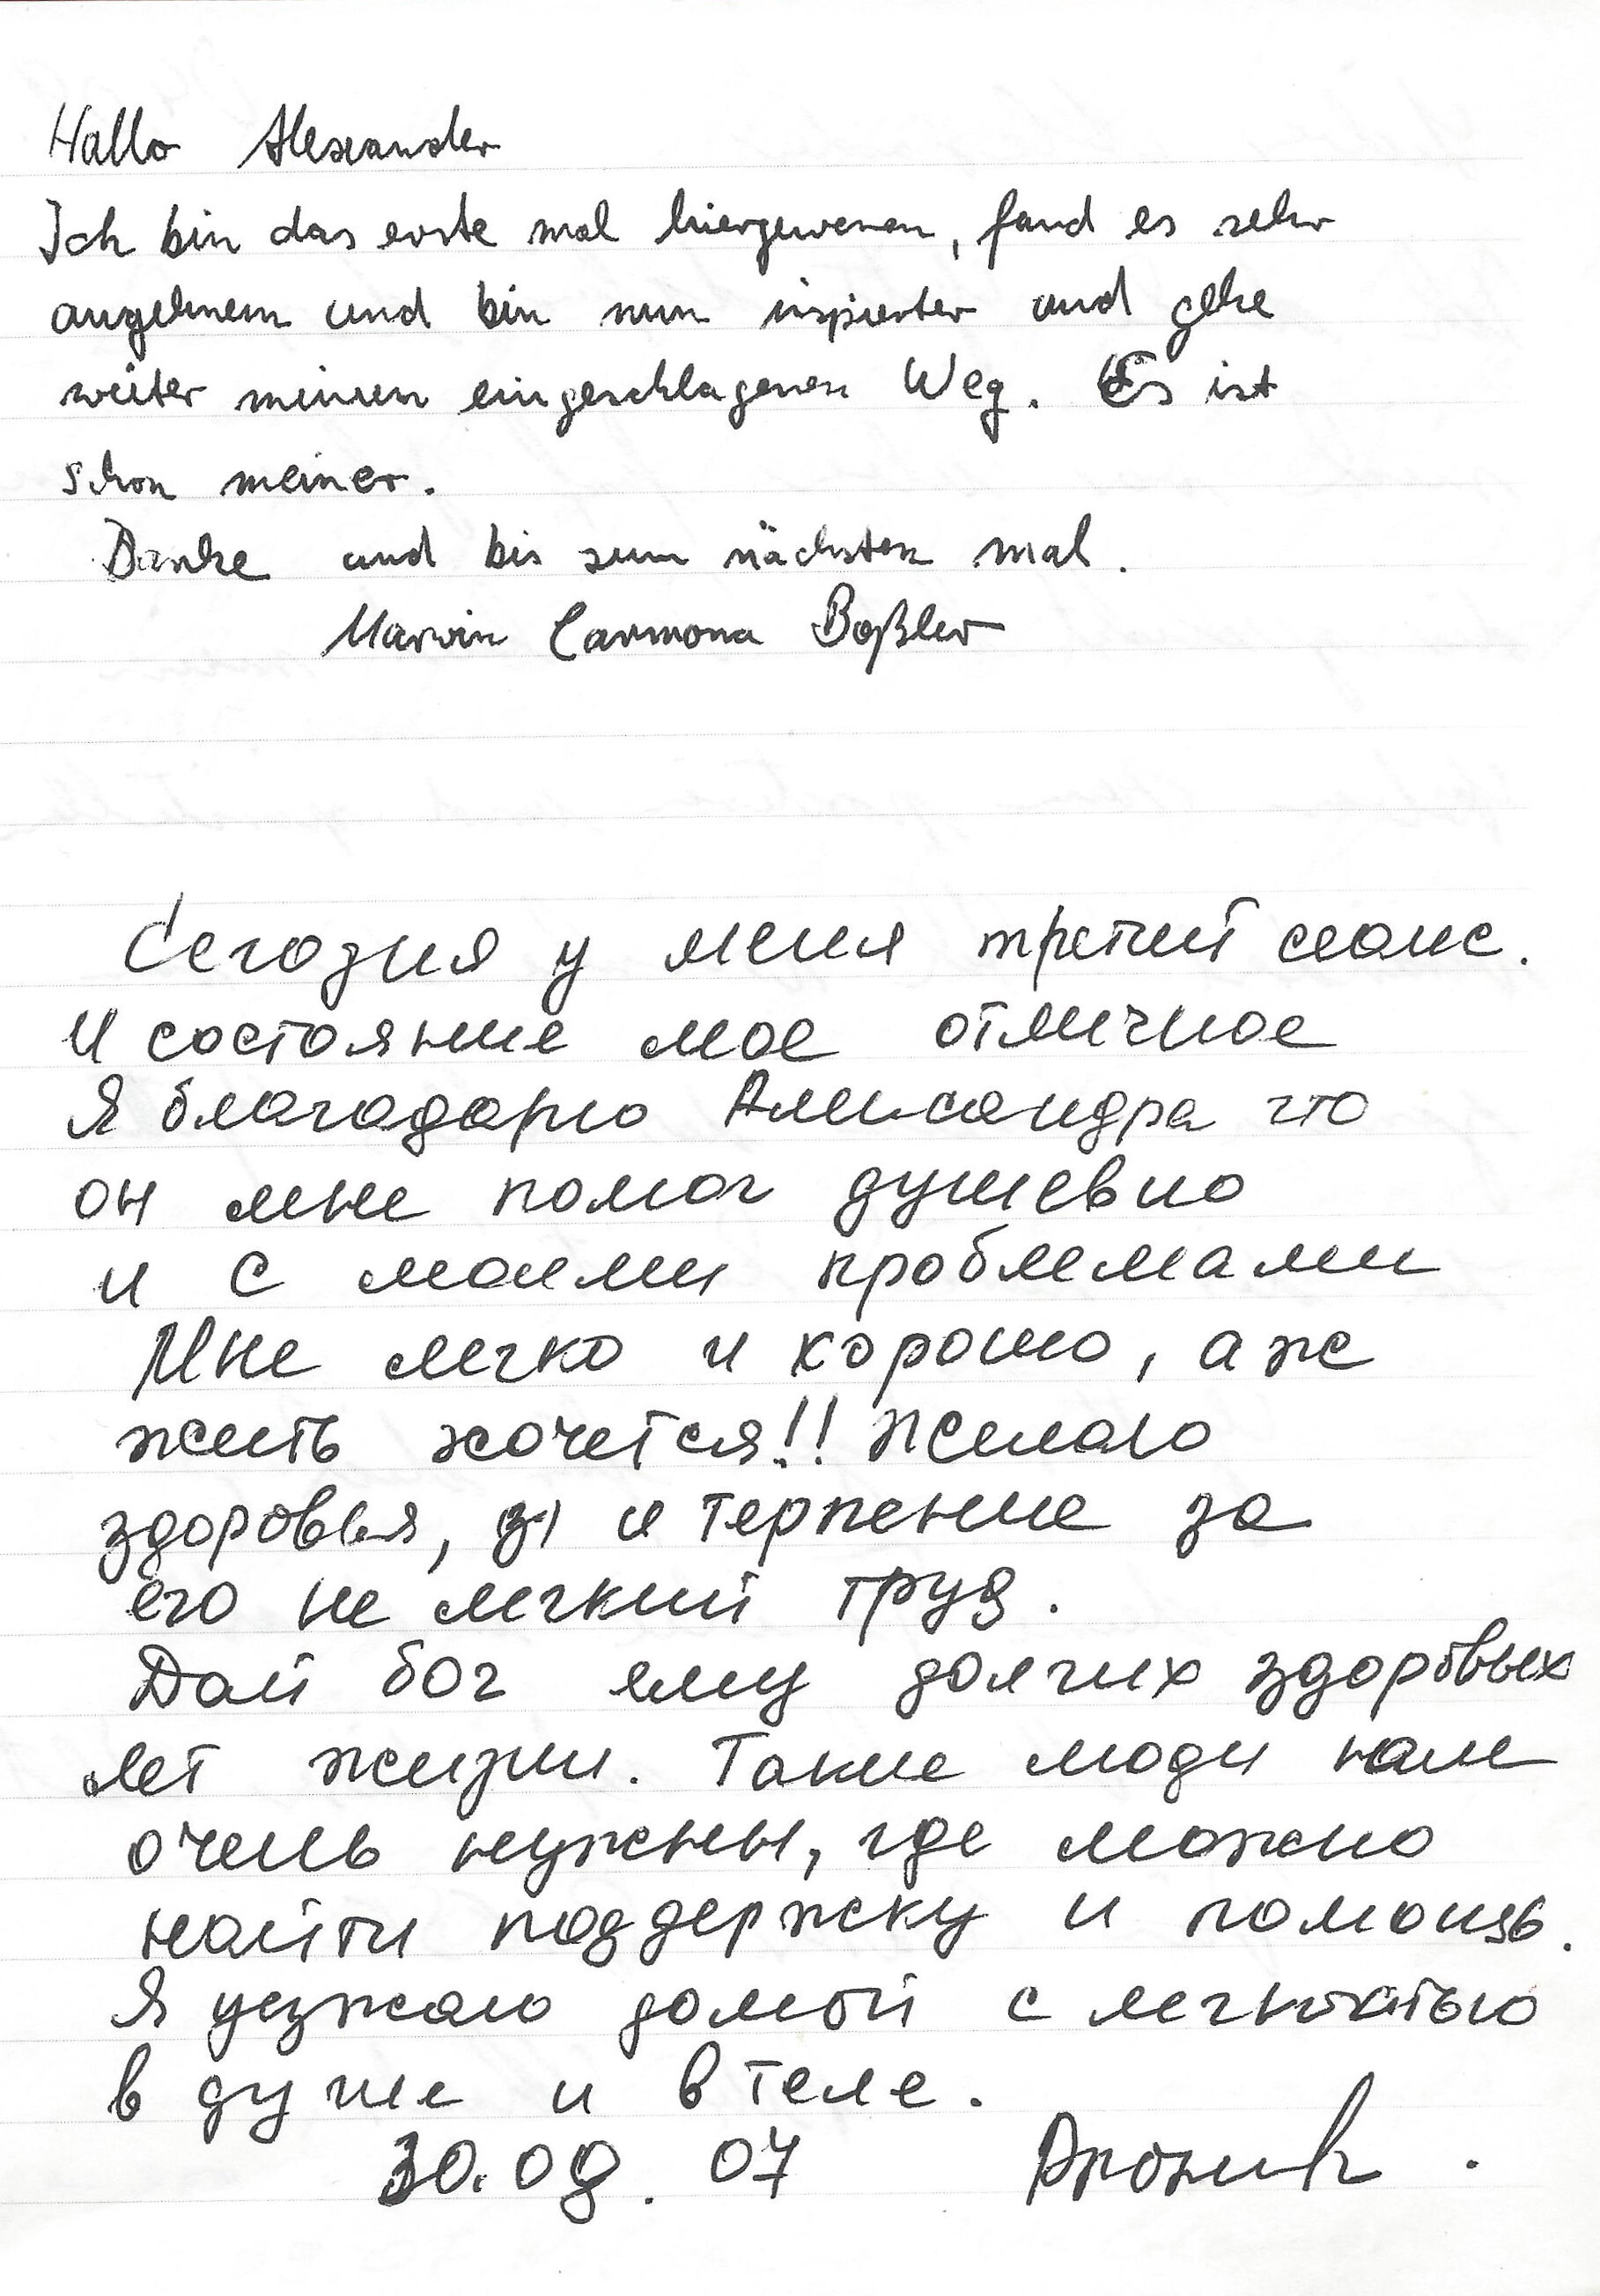 Hallo Alexander
Ich bin das erste mal hiergewesen, fand es sehr
angehnem und bin nun inspierter und gehe
weiter meinen eingeschlagenen Weg. Es ist
schon meiner.
Danke und bis zum nächsten mal.
Marvin Carmona Boßler
Сегодня у меня третий сеанс.
И состояние мое отличное
Я благодарю Александра что
он мне помог душевно
и с моими проблемами
Мне легко и хорошо, аж
жить хочется!! Желаю
здоровья, и терпение за
его не легкий труд.
Дай бог ему долгих здоровых
лет жизни. Такие люди нам
очень нужны, где можно
найти поддержку и помощь.
Я уезжаю домой с легкостью
в душе и в теле.
30.08.07